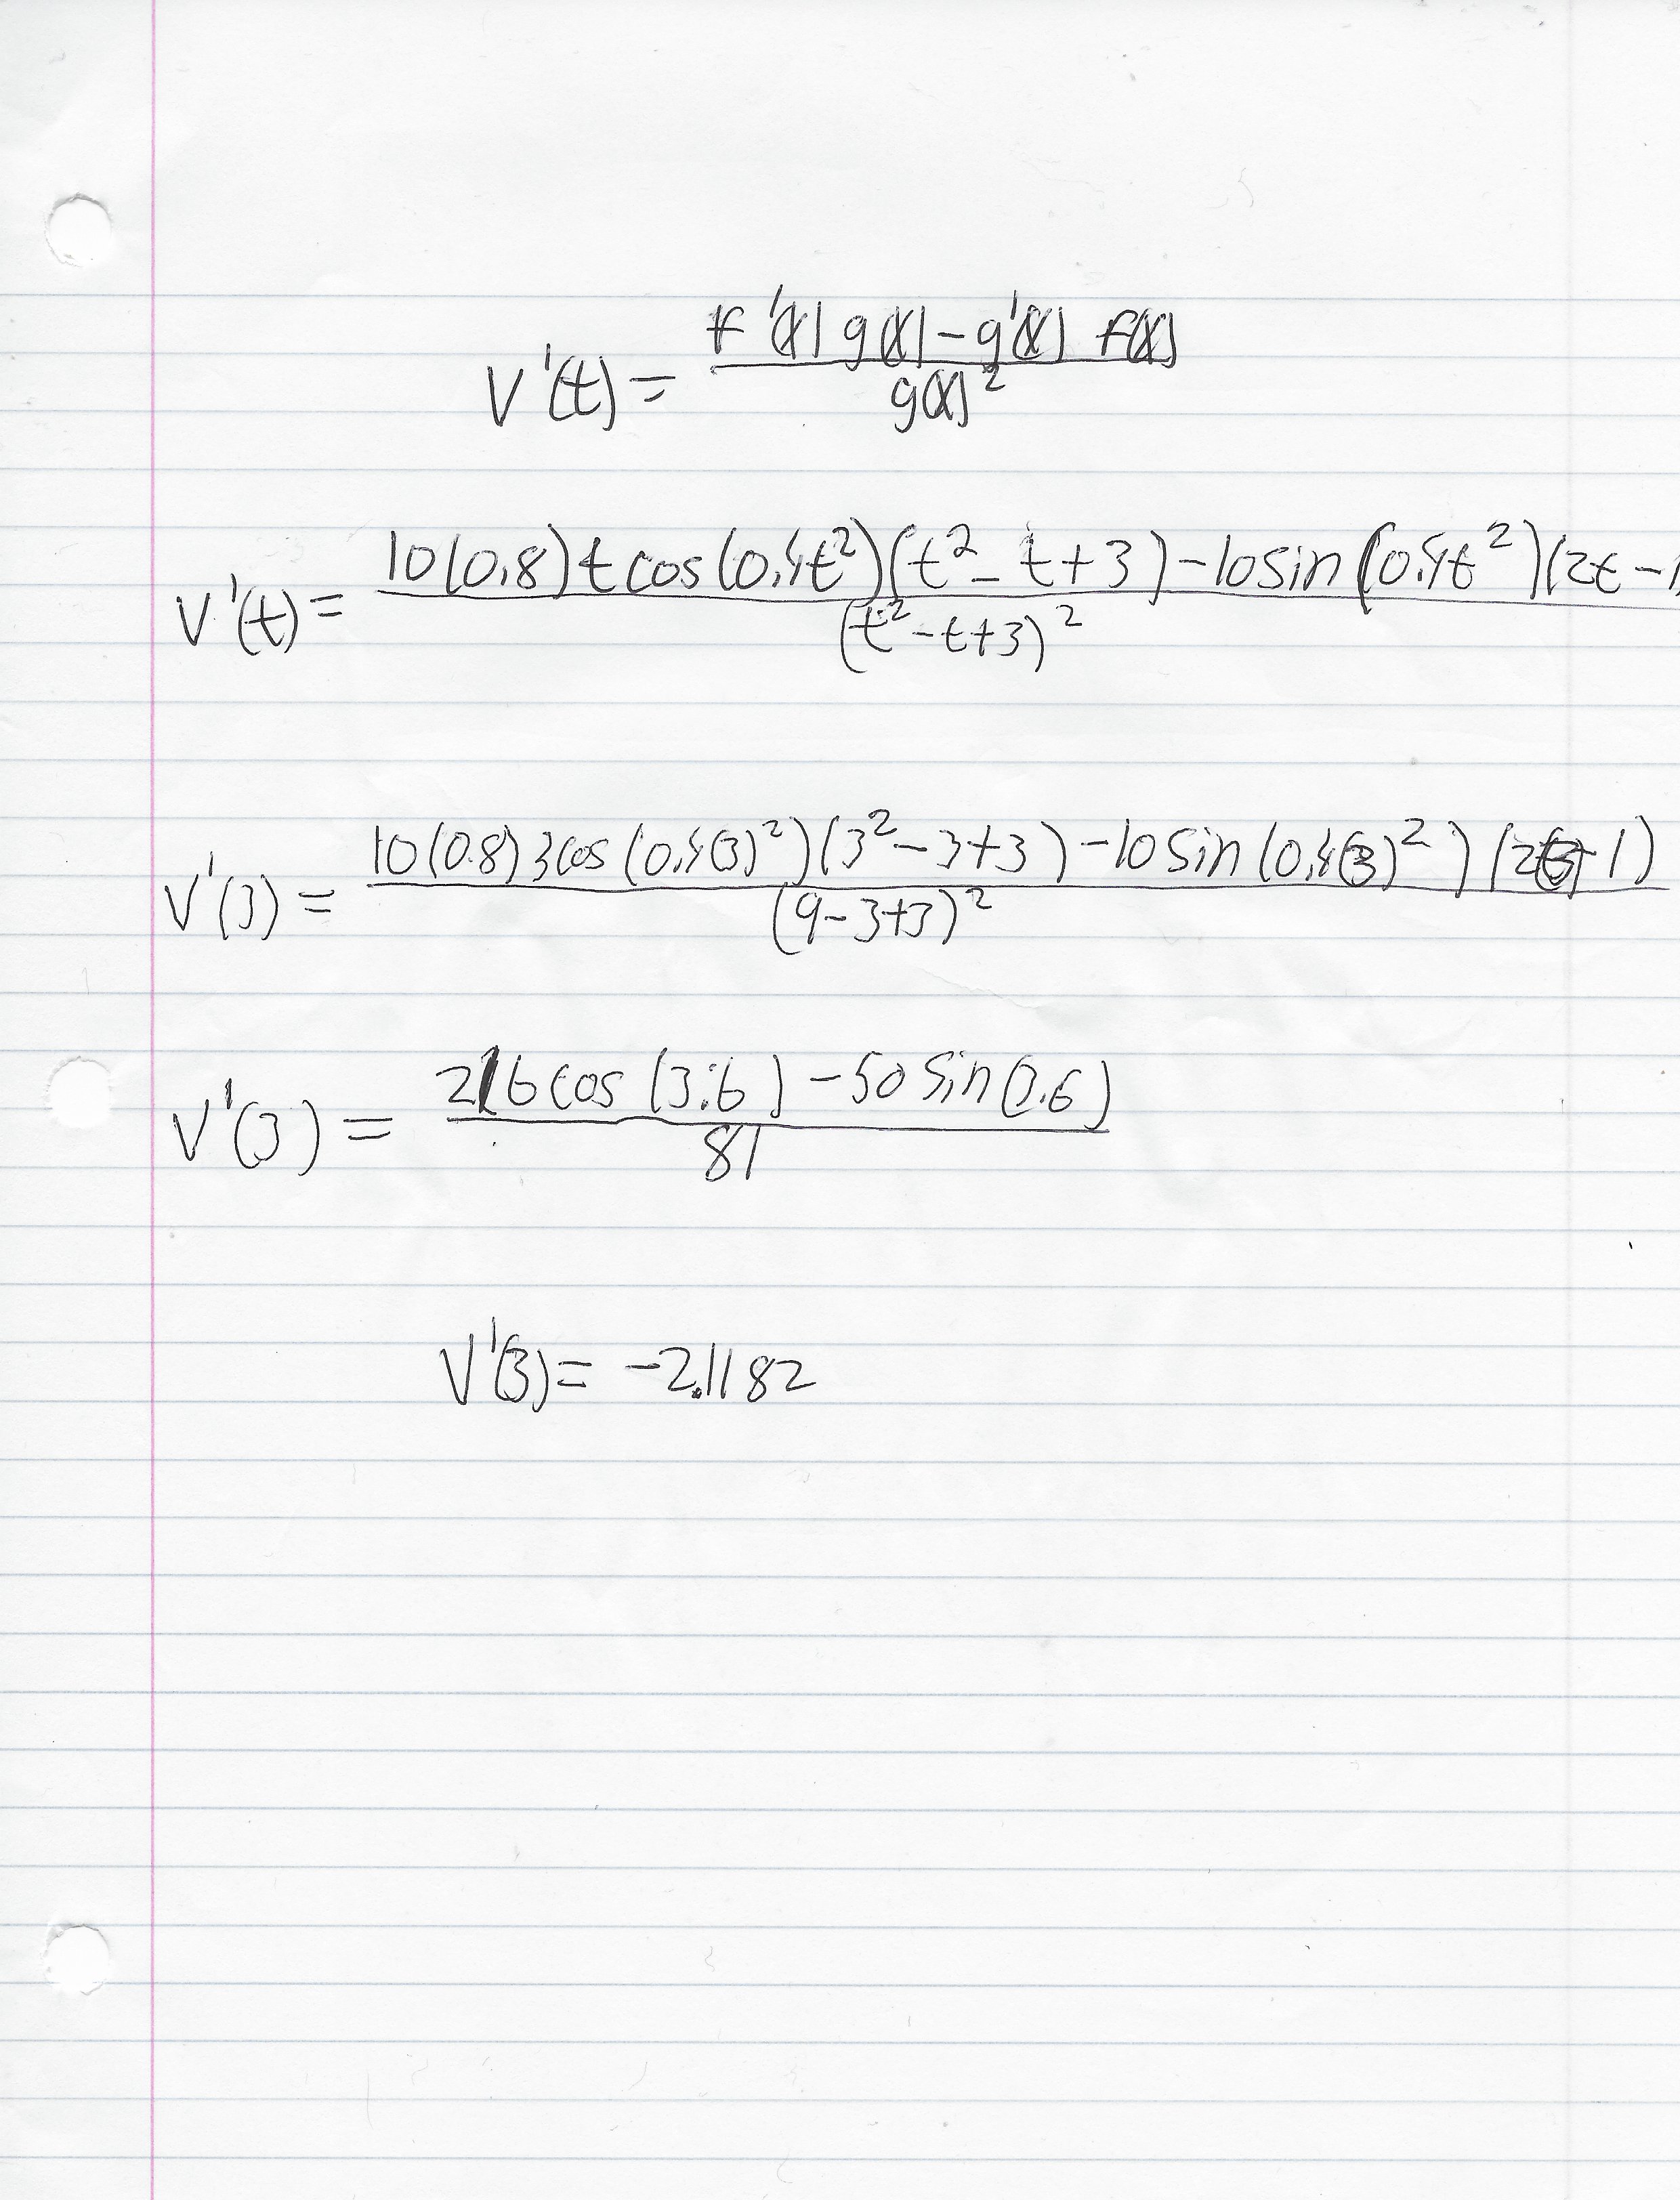 V'(t) = (f'(x) g(x) - g'(x) f(x)) / g(x)²
V'(t) = (10(0.8)t cos(0.4t²)(t² - t + 3) - 10 sin(0.4t²)(2t - 1) / (t² - t + 3)²
V'(3) = (10(0.8)3cos(0.4(3)²)(3² - 3 + 3) - 10 sin(0.4(3)²)(2(3) - 1)) / (9 - 3 + 3)²
V'(3) = (216 cos(3.6) - 50 sin(3.6)) / 81
V'(3) = -2.1182